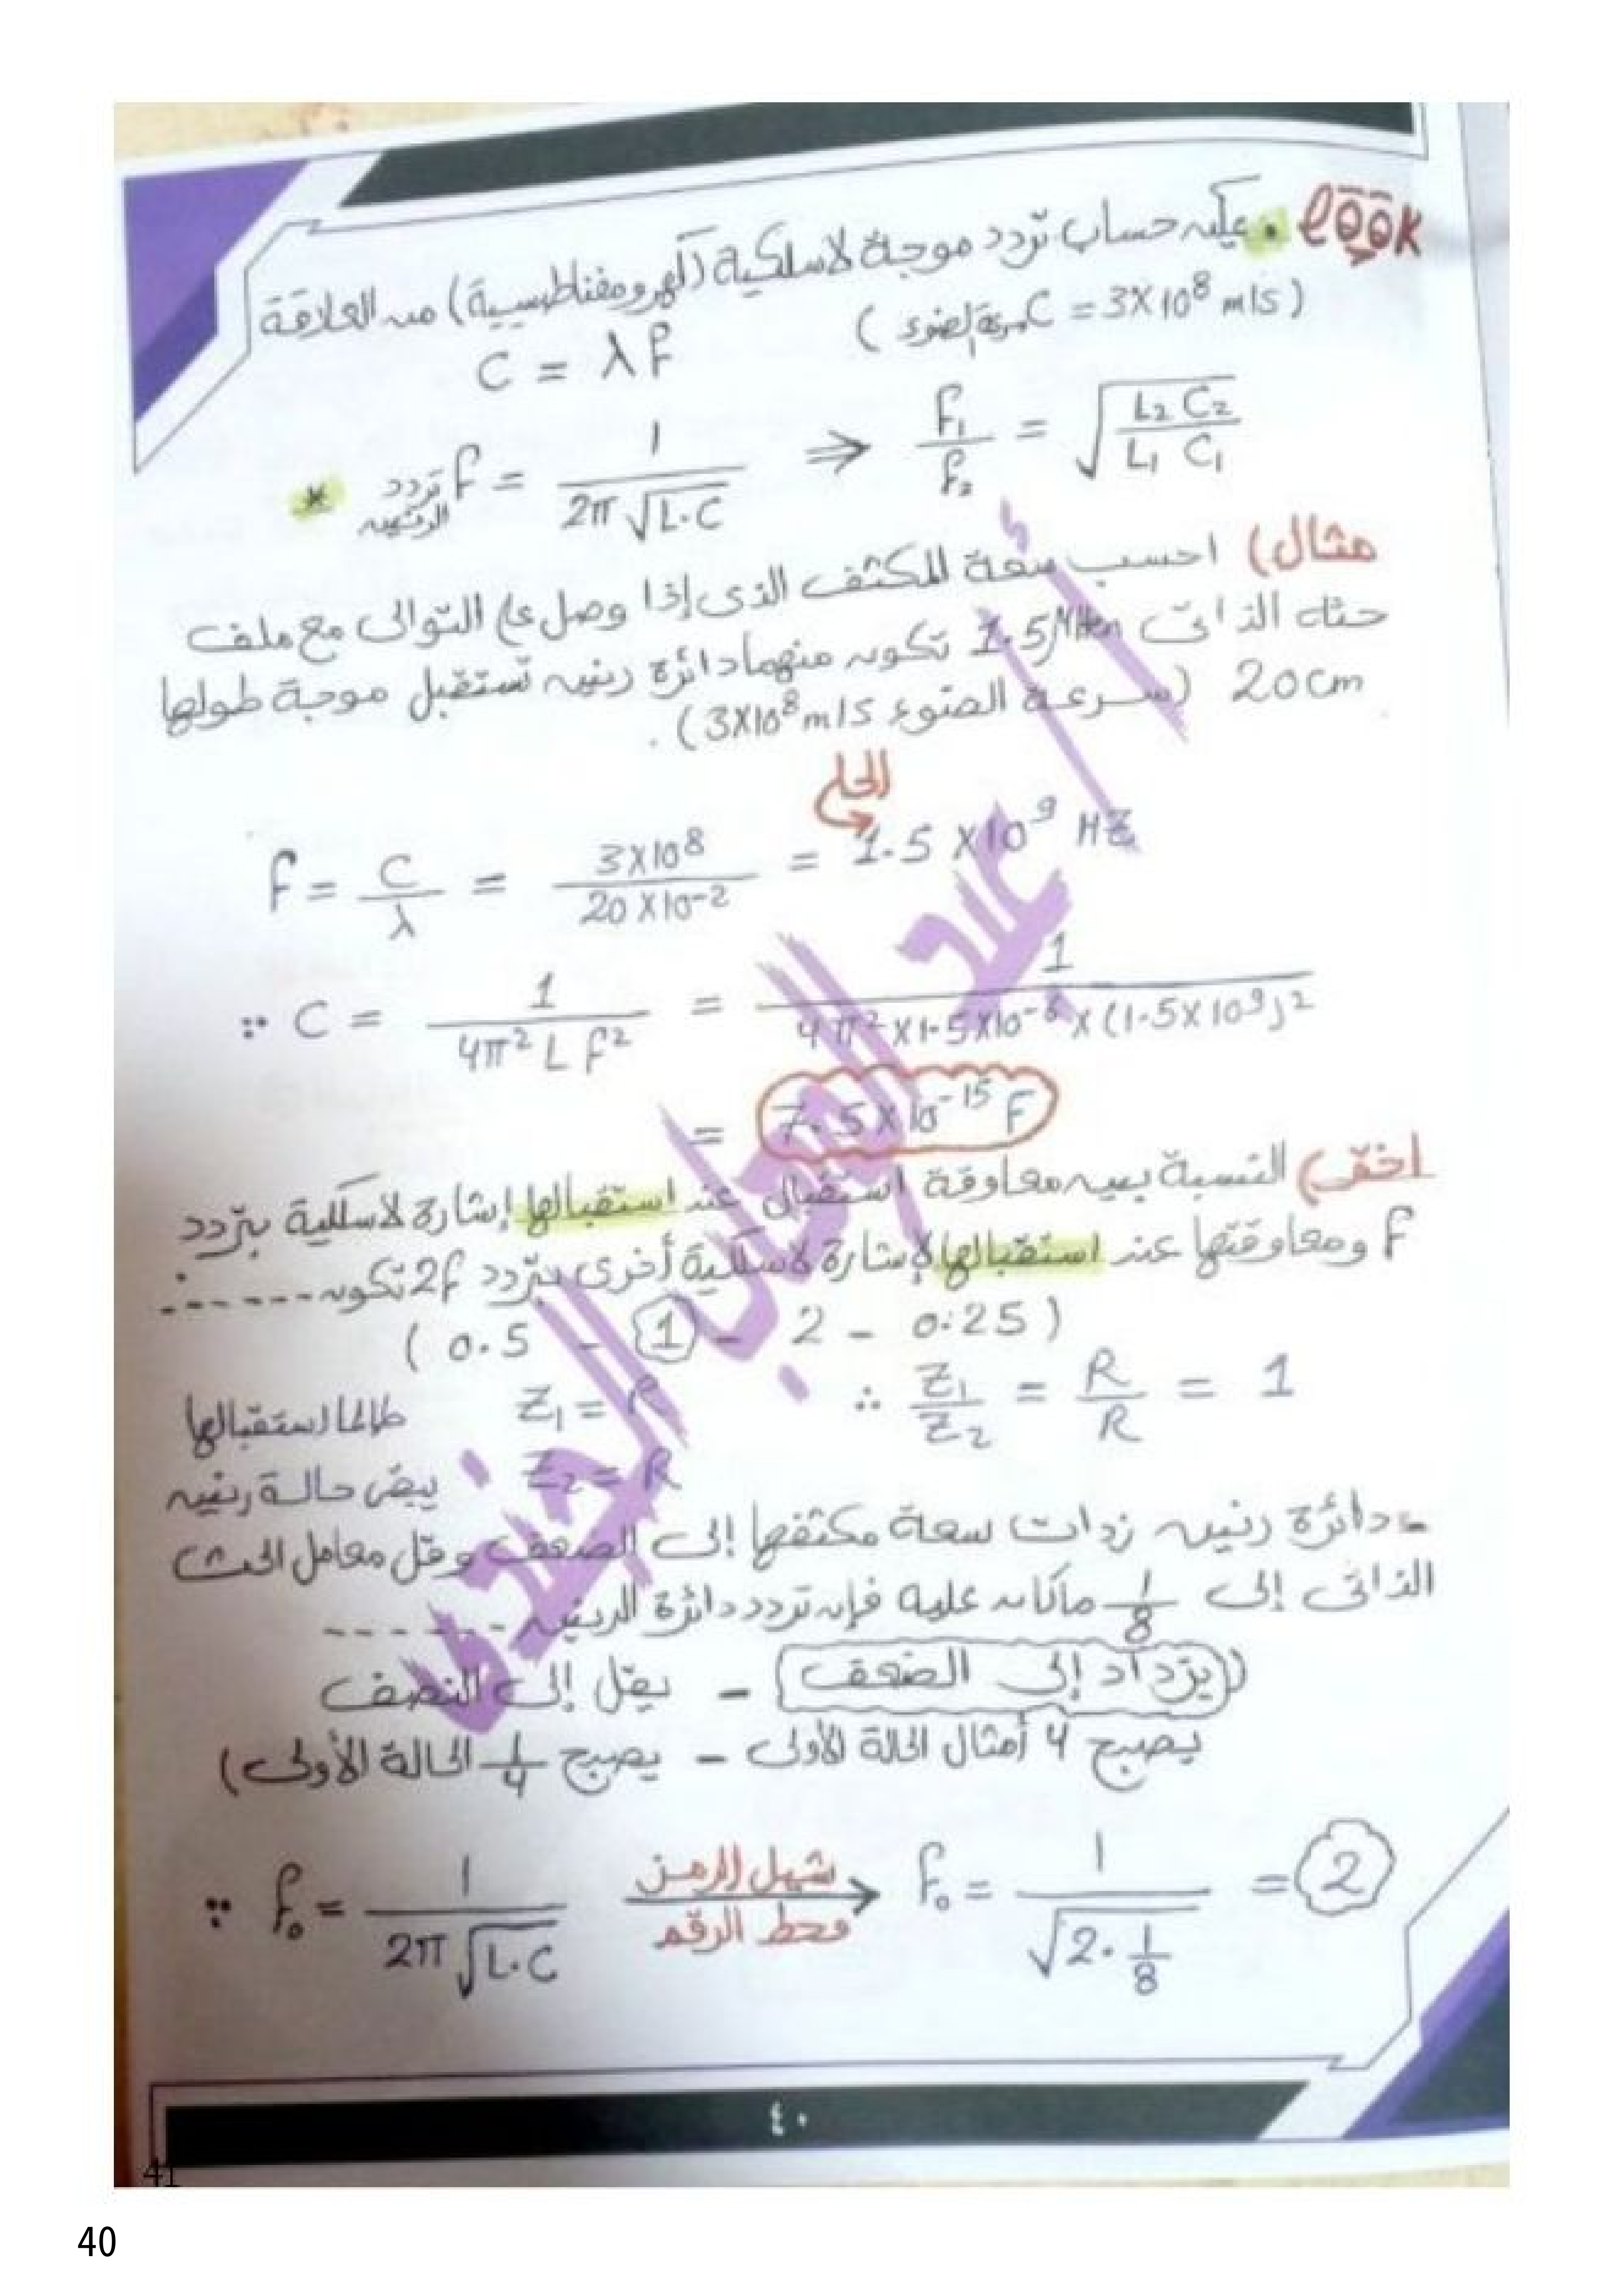 look • يمكن حساب تردد موجة لاسلكية (كهرومغناطيسية) من العلاقة
C = λ f (سرعة الضوء C = 3X10⁸ m/s)
* تردد الرنين f = 1 / 2π √L.C ⇒ f₁ / f₂ = √L₂ C₂ / L₁ C₁
مثال) احسب سعة المكثف الذى إذا وصل على التوالى مع ملف
حثه الذاتى 1.5 تكون منهما دائرة رنين تستقبل موجة طولها
20 cm (سرعة الضوء 3X10⁸ m/s).
الحل
f = C / λ = 3X10⁸ / 20X10⁻² = 1.5 X10⁹ HZ
∵ C = 1 / 4π² L f² = 1 / 4π² X1.5X10⁻⁶ X (1.5X10⁹)²
= 7.5X10⁻¹⁵ F
اختر) النسبة بين معاوقة استقبال عند استقبالها إشارة لاسلكية بتردد
f ومعاوقتها عند استقبالها لإشارة لاسلكية أخرى بتردد 2f تكون ------
( 0.5 - 1 - 2 - 0.25 )
طالما استقبالها Z₁ = R ∴ Z₁ / Z₂ = R / R = 1
يبقى حالة رنين Z₂ = R
- دائرة رنين زدات سعة مكثفها إلى الضعف وقل معامل الحث
الذاتى إلى 1/8 ماكان عليه فإن تردد دائرة الرنين ------
(يزداد إلى الضعف - يقل إلى النصف
يصبح 4 أمثال الحالة الأولى - يصبح 1/4 الحالة الأولى)
∵ f₀ = 1 / 2π √L.C شيل الرمز وحط الرقم → f₀ = 1 / √2 . 1/8 = 2
أ / عبد الوهاب الخضرى
٤٠
41
40